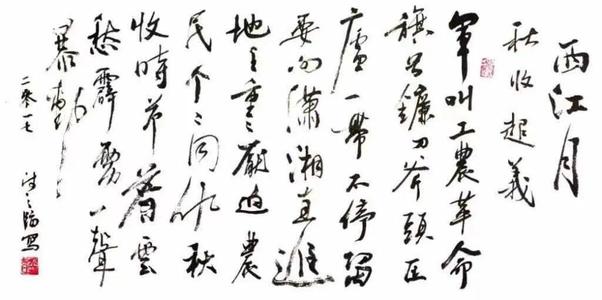 西江月
秋收起義
軍叫工農革命
旗号鐮刀斧頭匡
廬一帶不停留
要向瀟湘直進
地主重々壓迫農
民个々同仇秋
收時节暮雲
愁霹靂一聲
暴動
二零一七